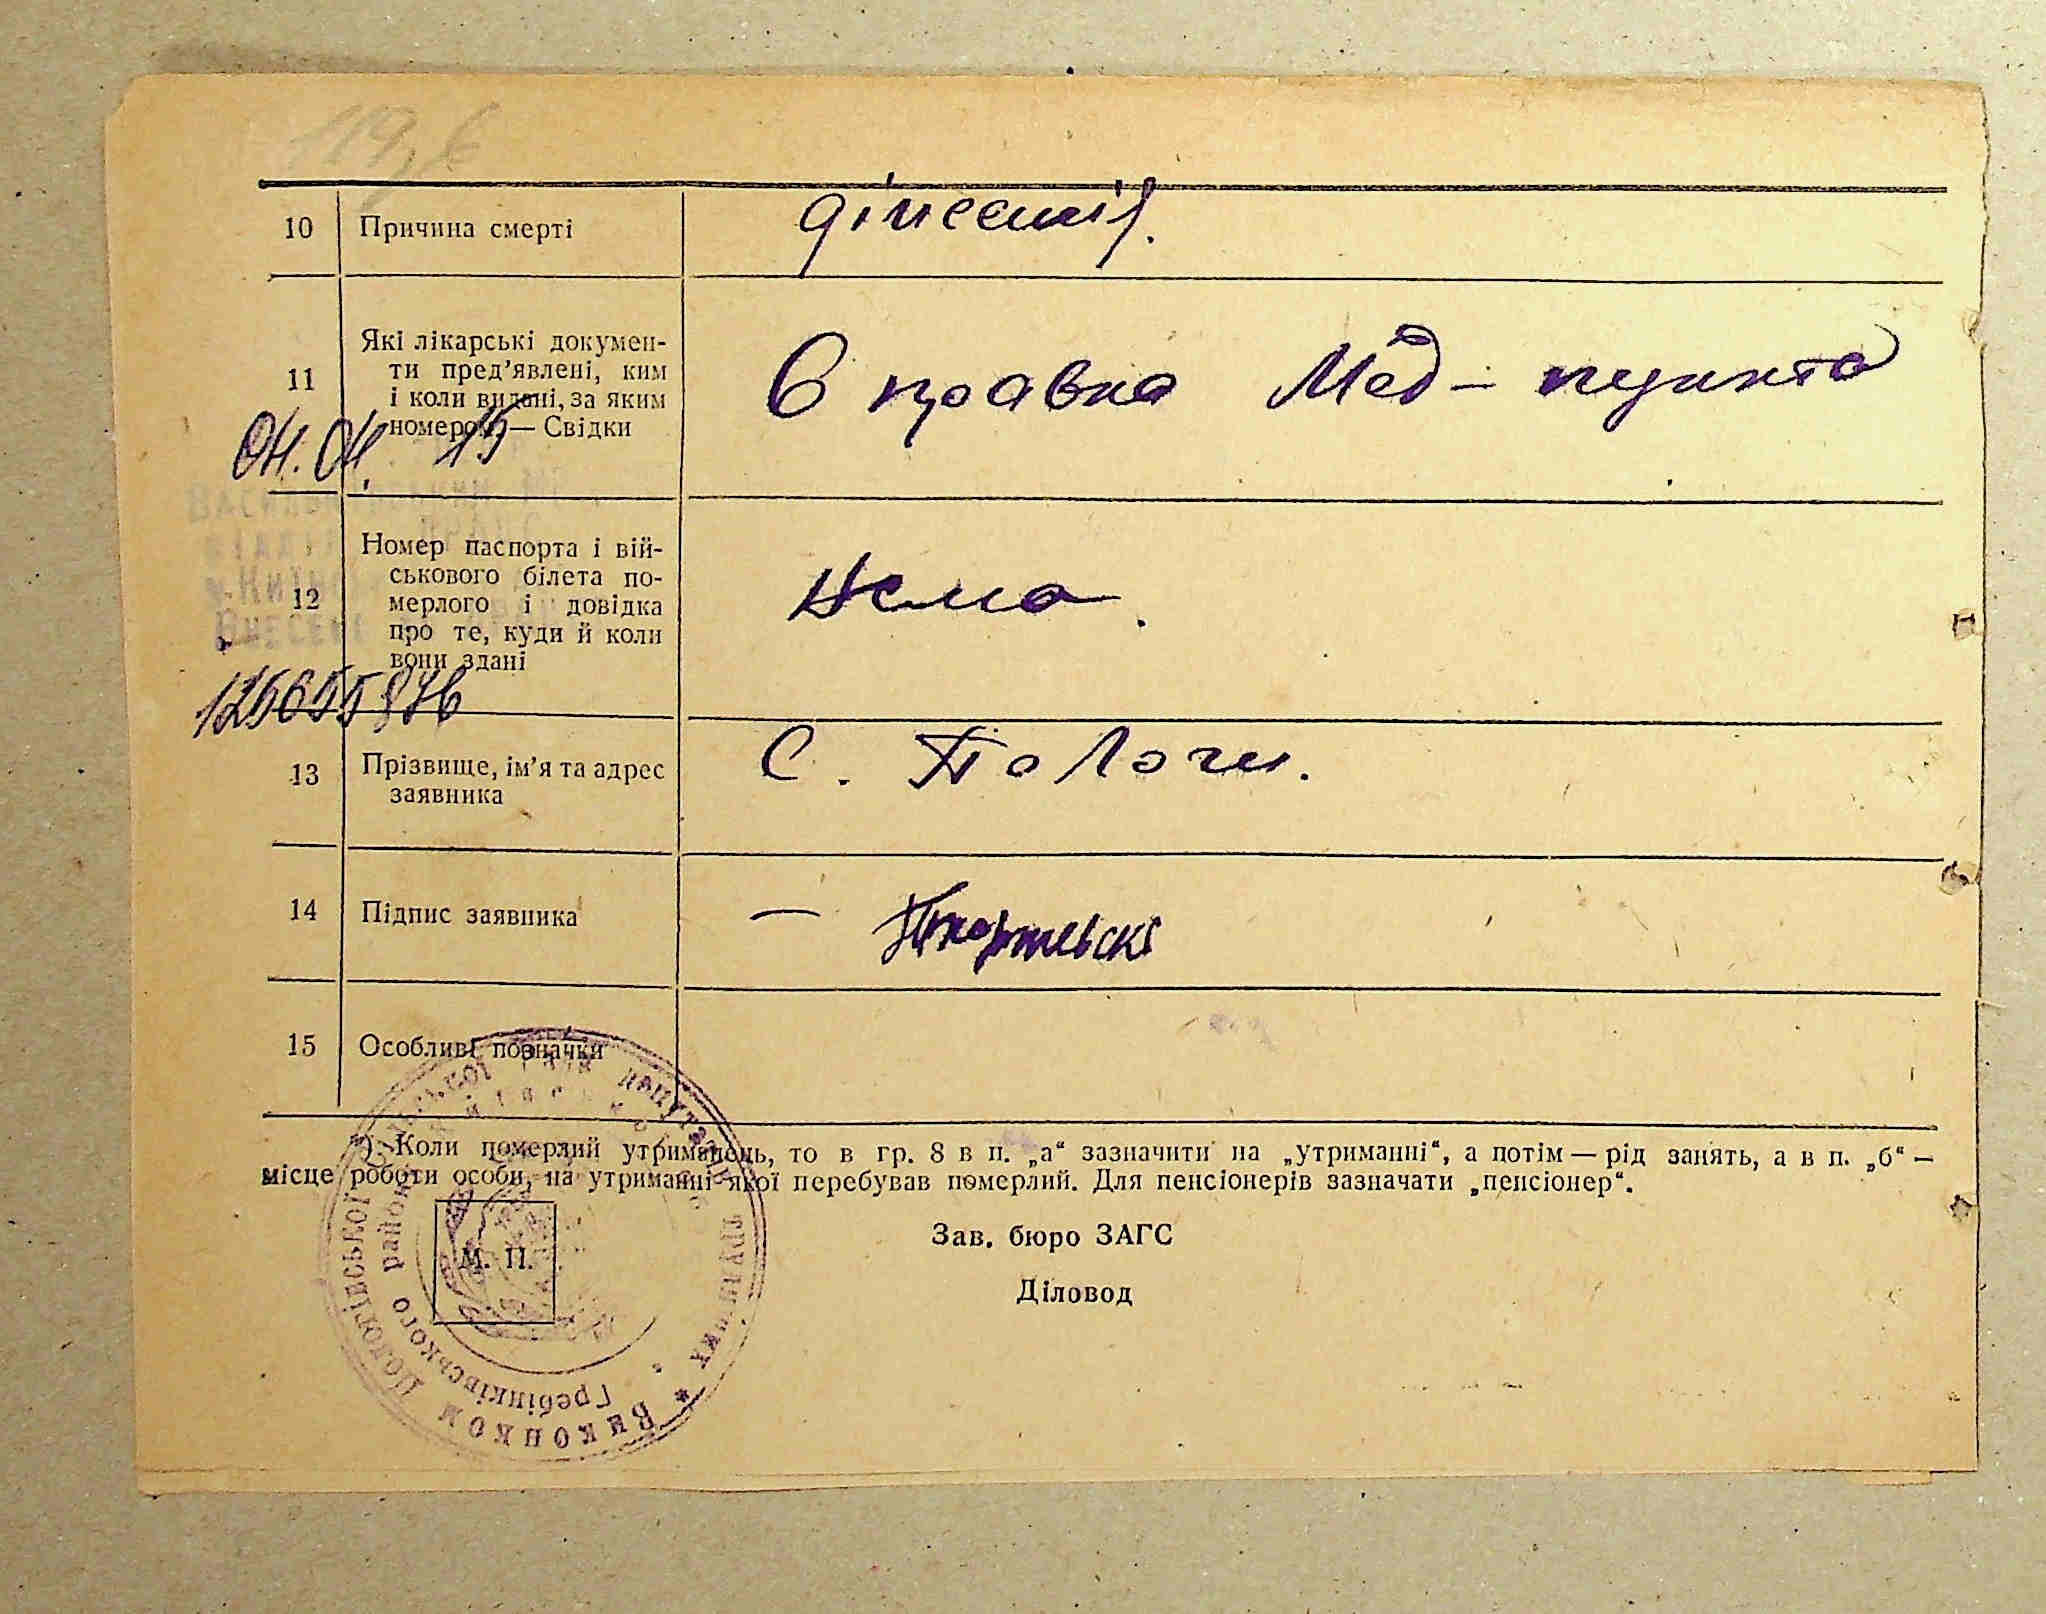 119,6
10 Причина смерті
11 Які лікарські докумен-
ти пред’явлені, ким
і коли видані, за яким
номером — Свідки
Справка Мед- пункта
04.04. 15
12 Номер паспорта і вій-
ськового білета по-
мерлого і довідка
про те, куди й коли
вони здані
Нема.
13 Прізвище, ім’я та адрес
заявника
С. Пологи.
14 Підпис заявника
—
15 Особливі позначки
*) Коли померлий утриманець, то в гр. 8 в п. „а“ зазначити на „утриманні“, а потім — рід занять, а в п. „б“ —
місце роботи особи, на утриманні якої перебував померлий. Для пенсіонерів зазначати „пенсіонер“.
Зав. бюро ЗАГС
Діловод
М. П.
Виконком Пологівської сільської ради депутатів трудящих *
Гребінківського району